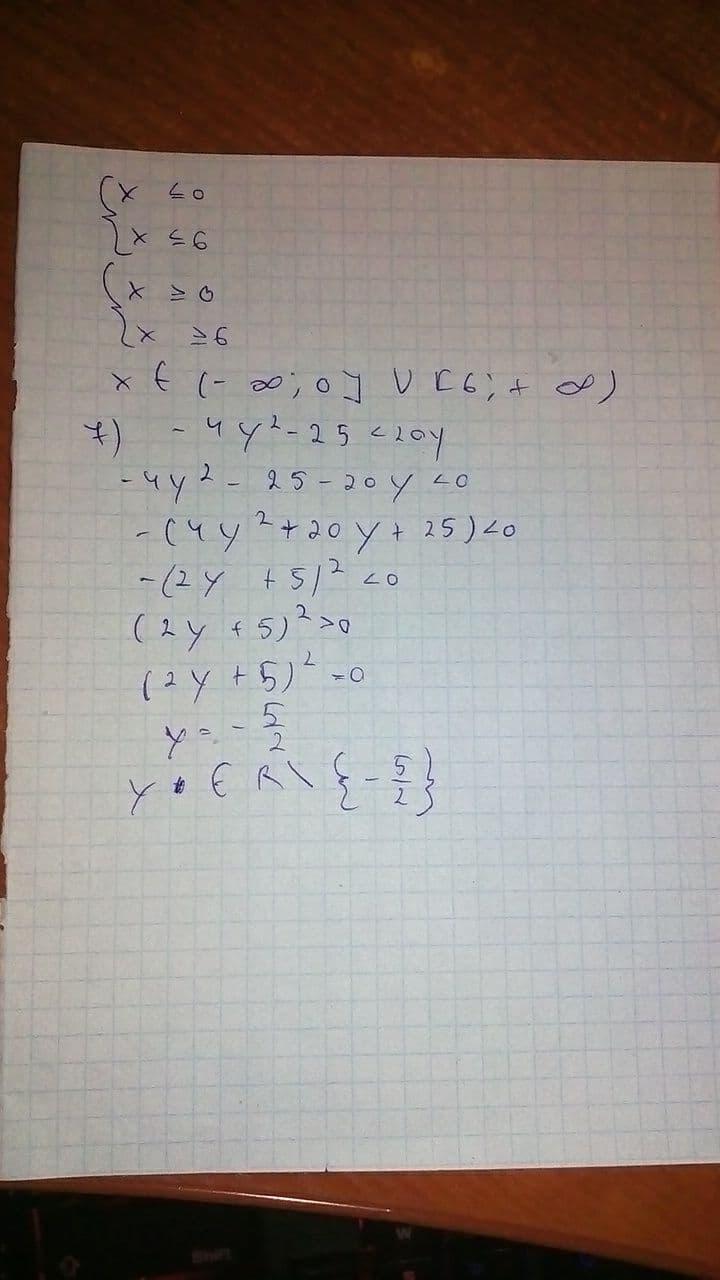 {x ≤0
{x ≤6
{x ≥ 0
{x ≥6
x ∈ (- ∞; 0] ∪ [6; + ∞)
7) - 4y²-25 <20y
-4y² - 25-20y <0
-(4y²+20y+ 25)<0
-(2y +5)² <0
(2y +5)²>0
(2y +5)² =0
y = - 5/2
y ∈ R\ {- 5/2}